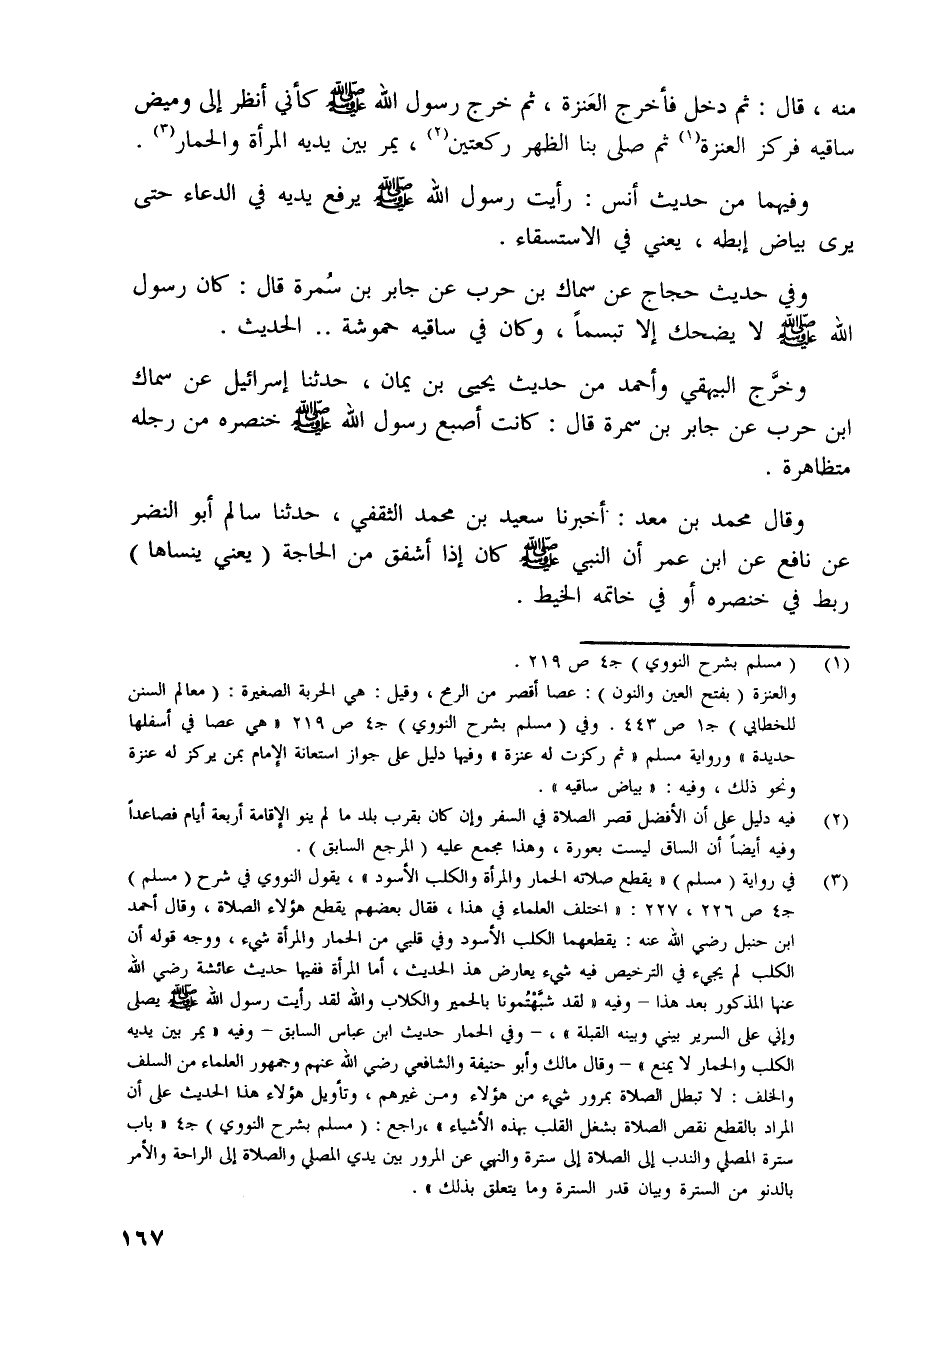 منه ، قال : ثم دخل فأخرج العَنزة ، ثم خرج رسول الله ﷺ كأني أنظر إلى وميض
ساقيه فركز العنزة(١) ثم صلى بنا الظهر ركعتين(٢) ، يمر بين يديه المرأة والحمار(٣) .
وفيهما من حديث أنس : رأيت رسول الله ﷺ يرفع يديه في الدعاء حتى
يرى بياض إبطه ، يعني في الاستسقاء .
وفي حديث حجاج عن سماك بن حرب عن جابر بن سُمرة قال : كان رسول
الله ﷺ لا يضحك إلا تبسماً ، وكان في ساقيه حموشة .. الحديث .
وخرَّج البيهقي وأحمد من حديث يحيى بن يمان ، حدثنا إسرائيل عن سماك
ابن حرب عن جابر بن سمرة قال : كانت أصبع رسول الله ﷺ خنصره من رجله
متظاهرة .
وقال محمد بن معد : أخبرنا سعيد بن محمد الثقفي ، حدثنا سالم أبو النضر
عن نافع عن ابن عمر أن النبي ﷺ كان إذا أشفق من الحاجة ( يعني ينساها )
ربط في خنصره أو في خاتمه الخيط .
(١) ( مسلم بشرح النووي ) جـ٤ ص ٢١٩ .
والعنزة ( بفتح العين والنون ) : عصا أقصر من الرمح ، وقيل : هي الحربة الصغيرة : ( معالم السنن
للخطابي ) جـ١ ص ٤٤٣ . وفي ( مسلم بشرح النووي ) جـ٤ ص ٢١٩ « هي عصا في أسفلها
حديدة » ورواية مسلم « ثم ركزت له عنزة » وفيها دليل على جواز استعانة الإمام بمن يركز له عنزة
ونحو ذلك ، وفيه : « بياض ساقيه » .
(٢) فيه دليل على أن الأفضل قصر الصلاة في السفر وإن كان بقرب بلد ما لم ينو الإقامة أربعة أيام فصاعداً
وفيه أيضاً أن الساق ليست بعورة ، وهذا مجمع عليه ( المرجع السابق ) .
(٣) في رواية ( مسلم ) « يقطع صلاته الحمار والمرأة والكلب الأسود » ، يقول النووي في شرح ( مسلم )
جـ٤ ص ٢٢٦ ، ٢٢٧ : « اختلف العلماء في هذا ، فقال بعضهم يقطع هؤلاء الصلاة ، وقال أحمد
ابن حنبل رضي الله عنه : يقطعهما الكلب الأسود وفي قلبي من الحمار والمرأة شيء ، ووجه قوله أن
الكلب لم يجيء في الترخيص فيه شيء يعارض هذ الحديث ، أما المرأة ففيها حديث عائشة رضي الله
عنها المذكور بعد هذا – وفيه « لقد شبَّهْتُمونا بالحمير والكلاب والله لقد رأيت رسول الله ﷺ يصلى
وإني على السرير بيني وبينه القبلة » ، – وفي الحمار حديث ابن عباس السابق – وفيه « يمر بين يديه
الكلب والحمار لا يمنع » – وقال مالك وأبو حنيفة والشافعي رضي الله عنهم وجمهور العلماء من السلف
والخلف : لا تبطل الصلاة بمرور شيء من هؤلاء ومن غيرهم ، وتأويل هؤلاء هذا الحديث على أن
المراد بالقطع نقص الصلاة بشغل القلب بهذه الأشياء » ،راجع : ( مسلم بشرح النووي ) جـ٤ « باب
سترة المصلي والندب إلى الصلاة إلى سترة والنهي عن المرور بين يدي المصلي والصلاة إلى الراحة والأمر
بالدنو من السترة وبيان قدر السترة وما يتعلق بذلك » .
١٦٧